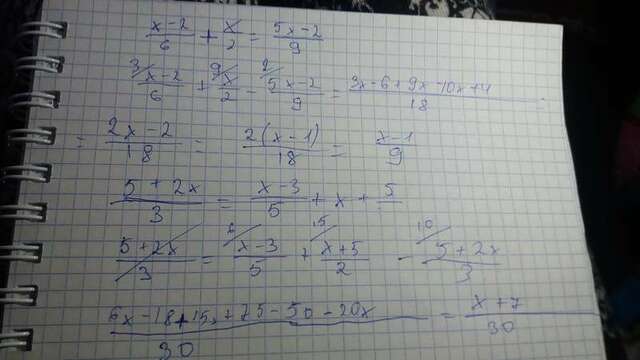 (x-2)/6 + x/2 = (5x-2)/9
3/ (x-2)/6 + 9/ x/2 - 2/ (5x-2)/9 = (3x-6+9x-10x+4)/18
= (2x-2)/18 = 2(x-1)/18 = (x-1)/9
(5+2x)/3 = (x-3)/5 + x + 5/
(5+2x)/3 = 6/ (x-3)/5 + 15/ (x+5)/2 - 10/ (5+2x)/3
(6x-18+15x+75-50-20x)/30 = (x+7)/30